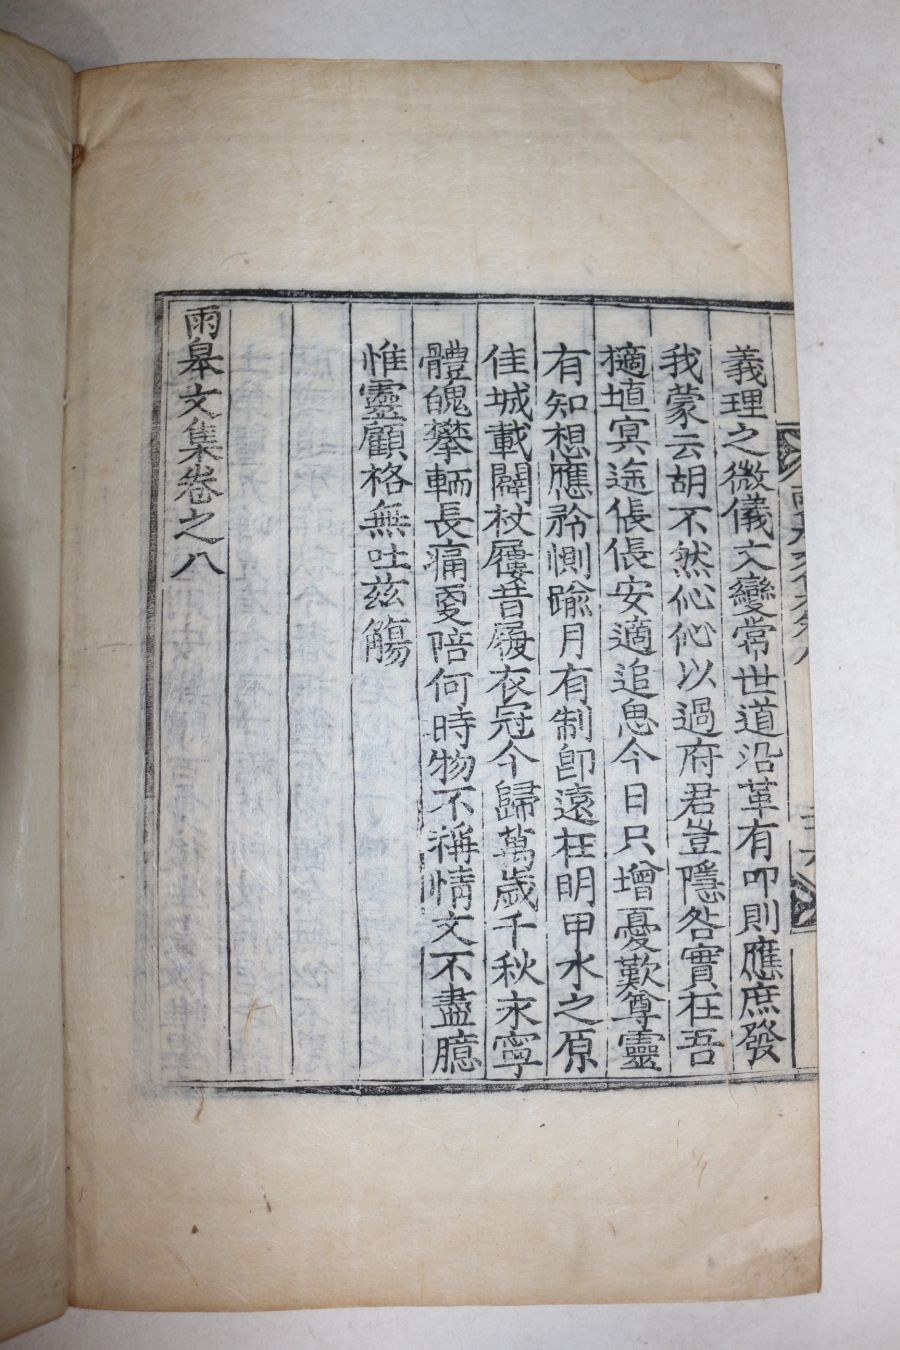 義理之微儀文變常世道沿革有叩則應庶發
我蒙云胡不然伈伈以過府君豈隱咎實在吾
擿埴冥途倀倀安適追思今日只增憂歎尊靈
有知想應矜惻踰月有制卽遠在明甲水之原
佳城載闢杖屨昔履衣冠今歸萬歲千秋永寧
體魄攀輀長痛更陪何時物不稱情文不盡臆
惟靈顧格無吐玆觴
雨皐文集卷之八